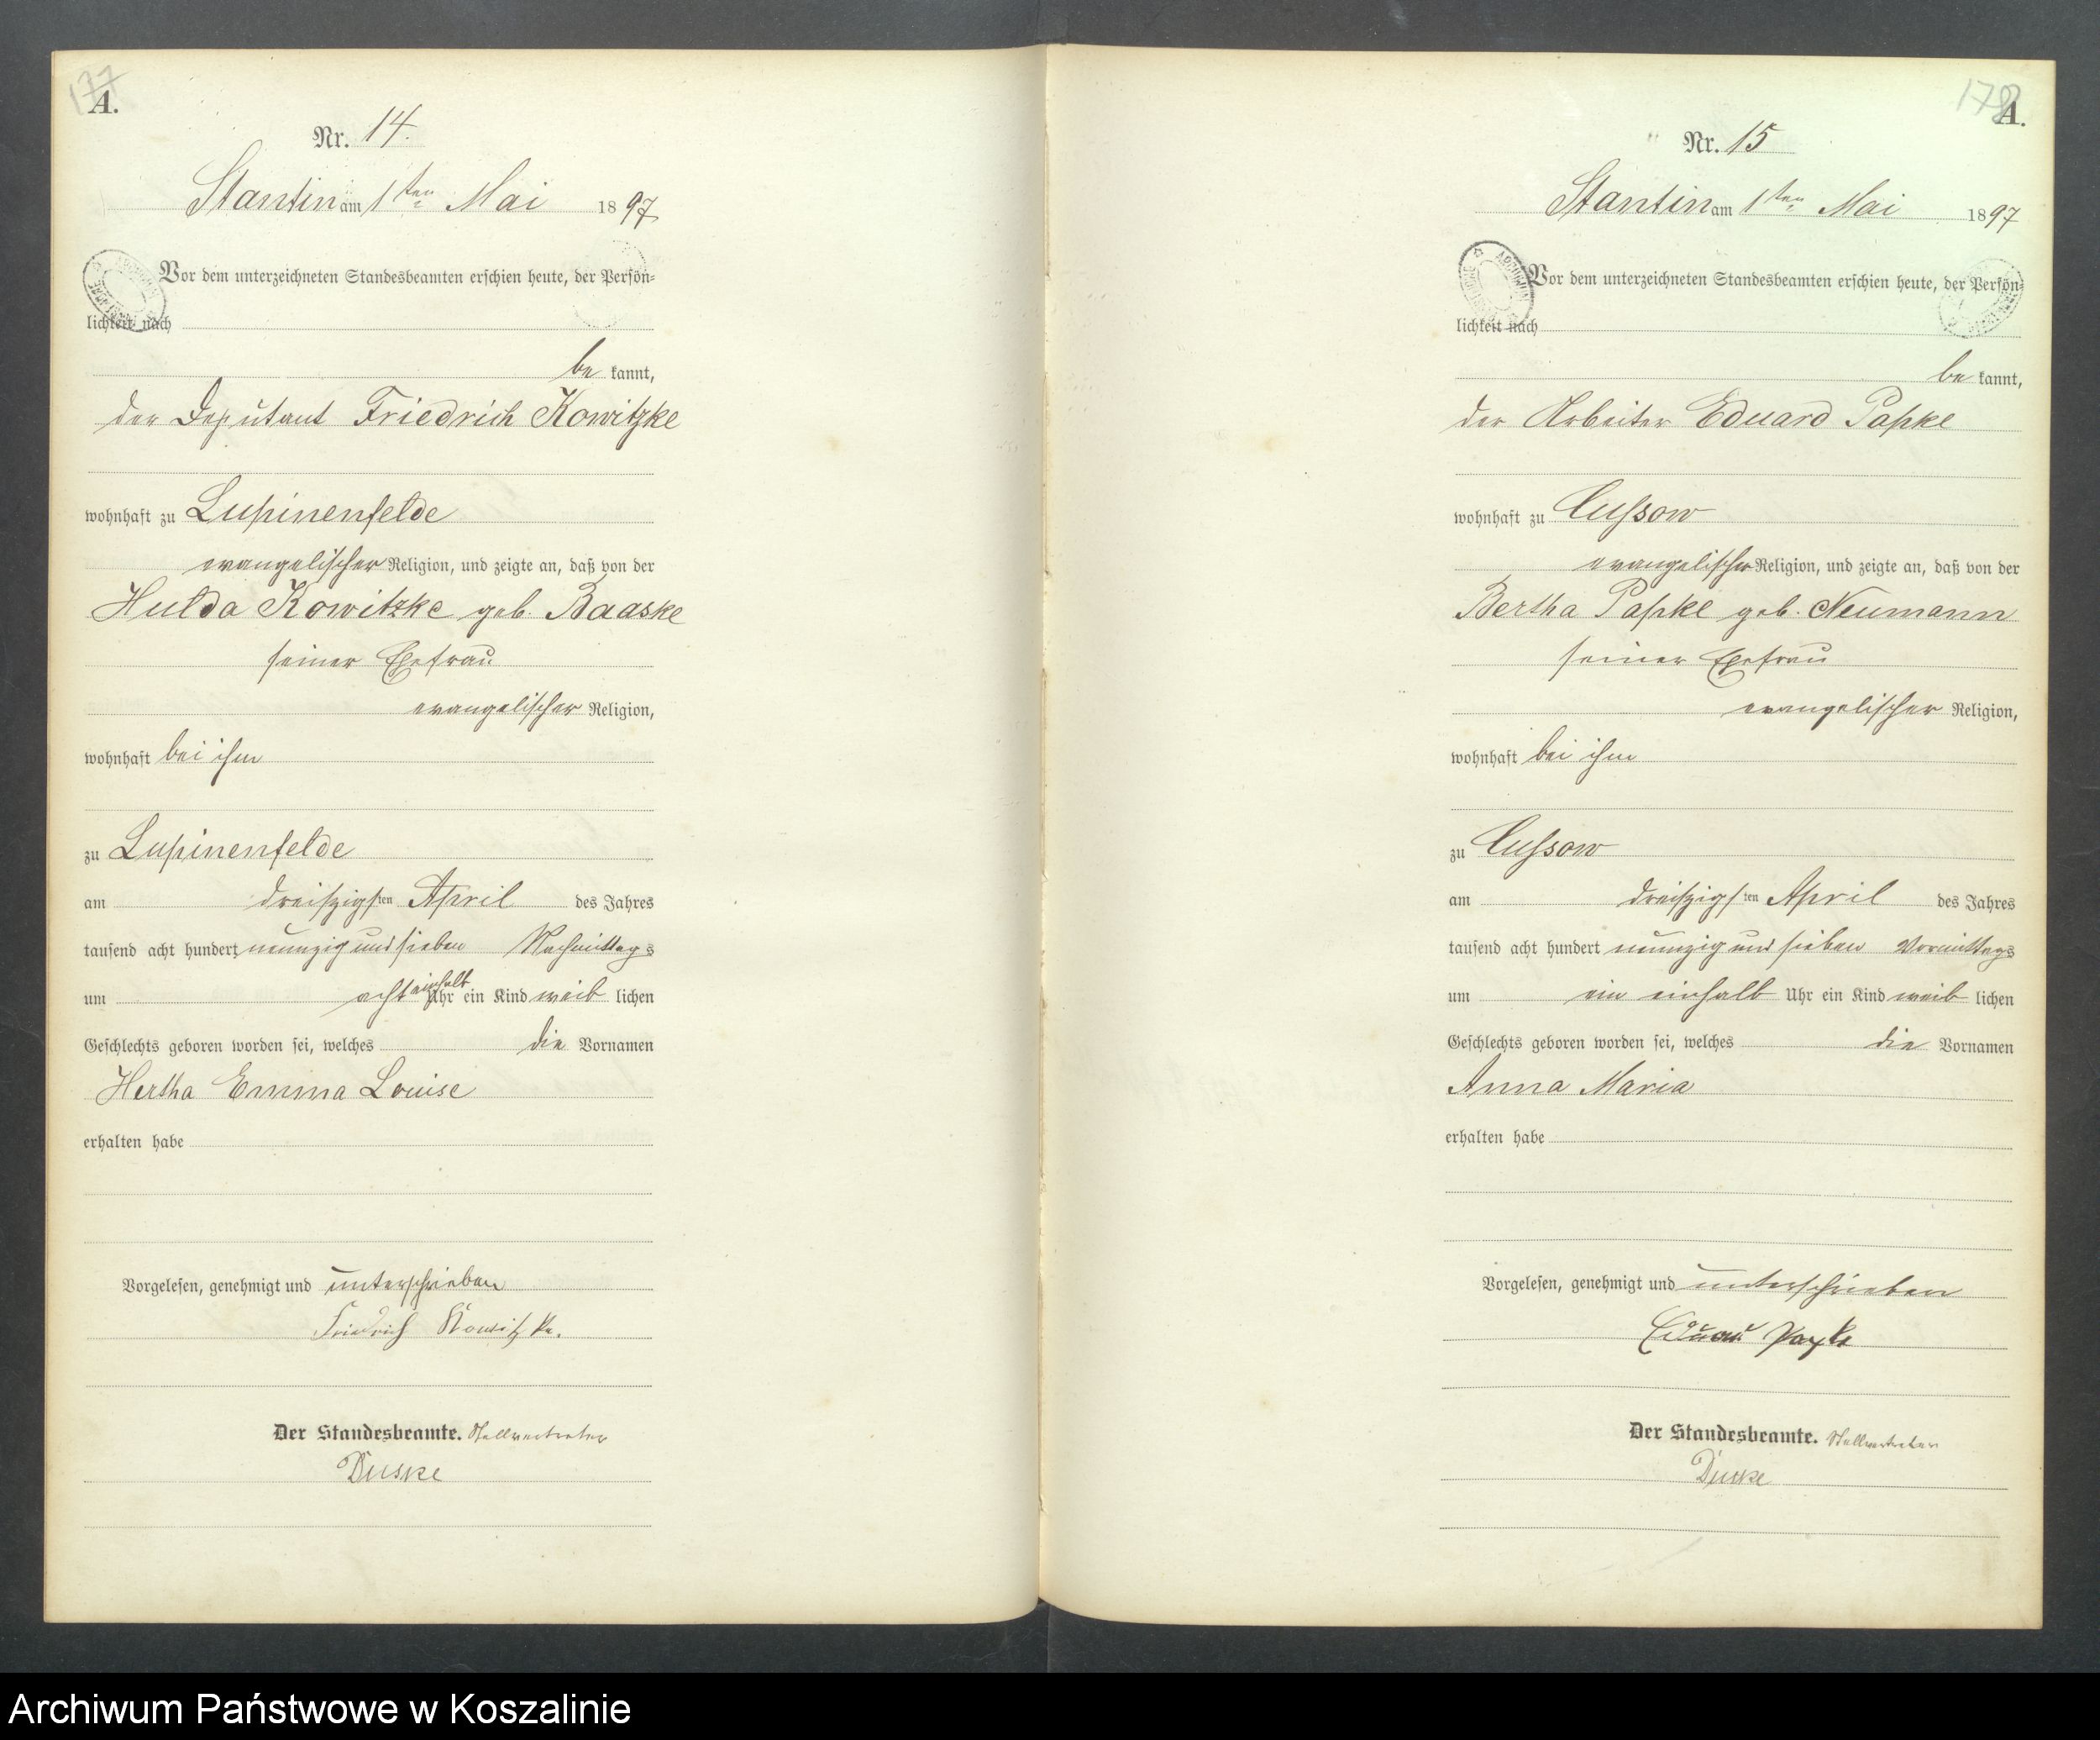 177
A.
Nr. 14.
Stantin am 1ten Mai 1897
Vor dem unterzeichneten Standesbeamten erschien heute, der Persön-
lichkeit nach
be kannt,
der Deputant Friedrich Kowitzke
wohnhaft zu Lupinenfelde
evangelischer Religion, und zeigte an, daß von der
Hulda Kowitzke geb. Baaske
seiner Ehefrau
evangelischer Religion,
wohnhaft bei ihm
zu Lupinenfelde
am dreißigsten April des Jahres
tausend acht hundert neunzig und sieben Nachmittags
um acht einhalb Uhr ein Kind weib lichen
Geschlechts geboren worden sei, welches die Vornamen
Hertha Emma Louise
erhalten habe
Vorgelesen, genehmigt und unterschrieben
Friedrich Kowitzke.
Der Standesbeamte. Stellvertreter
178
A.
Nr. 15
Stantin am 1ten Mai 1897
Vor dem unterzeichneten Standesbeamten erschien heute, der Persön-
lichkeit nach
be kannt,
der Arbeiter Eduard Papke
wohnhaft zu Cussow
evangelischer Religion, und zeigte an, daß von der
Bertha Papke geb. Neumann
seiner Ehefrau
evangelischer Religion,
wohnhaft bei ihm
zu Cussow
am dreißigsten April des Jahres
tausend acht hundert neunzig und sieben Vormittags
um ein einhalb Uhr ein Kind weib lichen
Geschlechts geboren worden sei, welches die Vornamen
Anna Maria
erhalten habe
Vorgelesen, genehmigt und unterschrieben
Eduard Papke
Der Standesbeamte. Stellvertreter
Archiwum Państwowe w Koszalinie